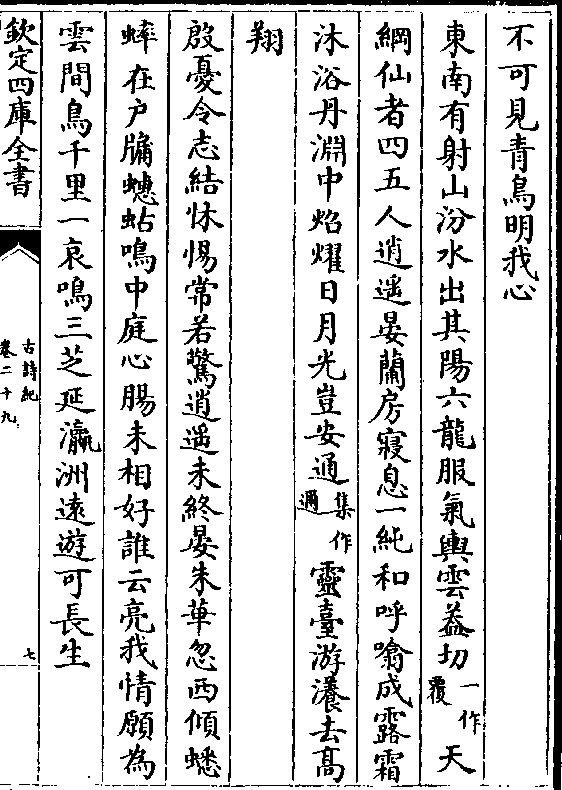 不可見青鳥明我心
東南有射山汾水出其陽六龍服氣輿雲葢切一作覆天
綱仙者四五人逍遥晏蘭房寢息一純和呼噏成露霜
沐浴丹淵中炤燿日月光豈安通集作邇靈臺游瀁去高
翔
殷憂令志結怵惕常若驚逍遥未終晏朱華忽西傾蟋
蟀在户牖蟪蛄鳴中庭心腸未相好誰云亮我情願為
雲間鳥千里一哀鳴三芝延瀛洲逺遊可長生
欽定四庫全書
古詩紀
卷二十九
七